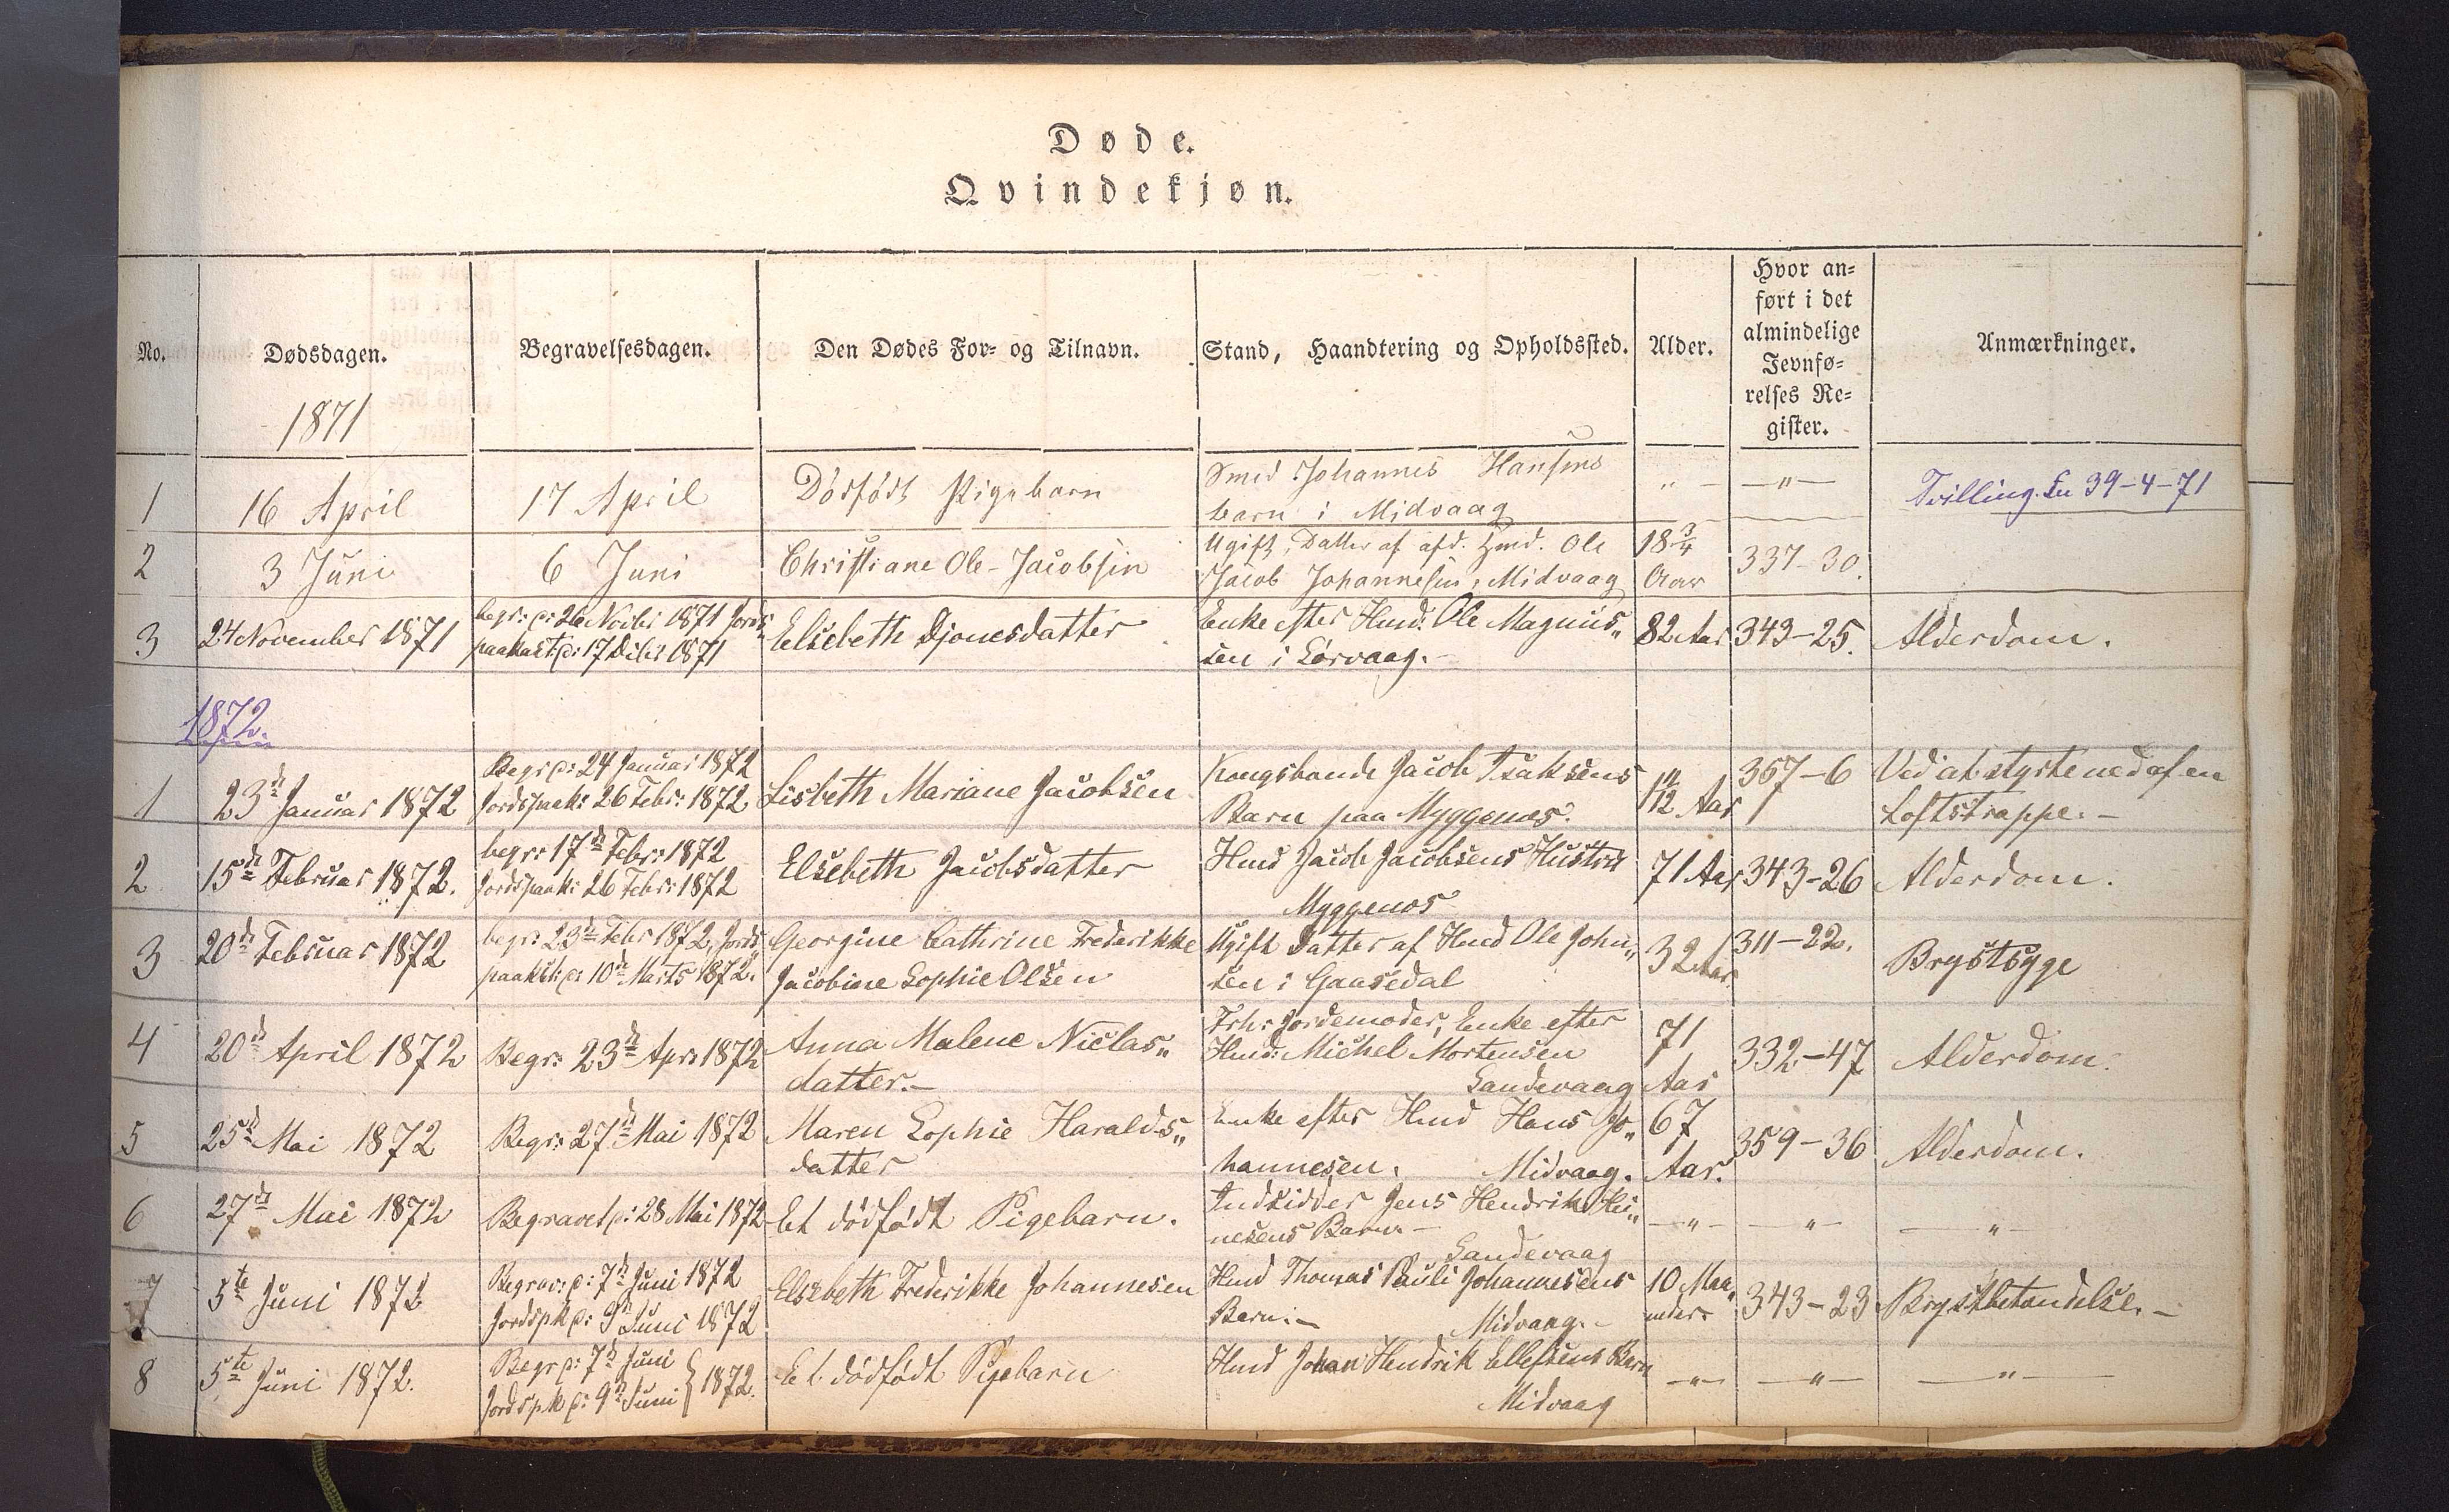 Døde.
Qvindekjøn.
No.
Dødsdagen.
Begravelsesdagen.
Den Dødes For- og Tilnavn.
Stand, Haandtering og Opholdssted.
Alder.
Hvor an-
ført i det
almindelige
Jevnfø-
relses Re-
gister.
Anmærkninger.
1871
1
16 April
17 April
Dödfödt Pigebarn
Smed Johannes Hansens
barn i Midvaag
" - —"—
Tvilling. 39-4-71
2
3 Juni
6 Juni
Christiane Ole-Jacobsen
Ugift, Datter af afd. Hmd. Ole
Jacob Johannesen, Midvaag
18 3/4
Aar
337-30.
3
24 November 1871
begr: p: 26 Novbr 1871 Jords„
paakast p: 17 Decbr 1871
Elsebeth Djonesdatter
Enke efter Hmd: Ole Magnus„
sen i Sörvaag.-
82 Aar
343-25.
Alderdom.
1872.
1
23d Januar 1872
Begr p: 24 Januar 1872
Jordspaak: 26 Febr: 1872
Lisbeth Mariane Jacobsen
Kongsbonde Jacob Isaksens
Barn paa Myggenæs.
1 11/12 Aar
357-6
Ved at styrte ned af en
Loftstrappe.-
2
15d Februar 1872.
begr: 17d Febr: 1872
Jordspaak: 26 Febr: 1872
Elsebeth Jacobsdatter
Hmd Jacob Jacobsens Hustru
Myggenæs
71 Aar
343-26
Alderdom.
3
20d Februar 1872
begr: 23d Febr 1872, Jords„
paakst: p: 10d Marts 1872.
Georgine Cathrine Frederikke
Jacobine Sophie Olsen
Ugift Datter af Hmd Ole John„
sen i Gaasedal
32 Aar
311-22.
Brystsyge
4
20d April 1872
Begr: 23d Apr: 1872
Anna Malene Niclas„
datter.-
Frh: Jordemoder, Enke efter
Hmd: Michel Mortensen
Sandevaag
71
Aar
332-47
Alderdom.
5
25d Mai 1872
Begr: 27d Mai 1872
Maren Sophie Haralds„
datter
Enke efter Hmd Hans Jo„
hannesen. Midvaag.
67
Aar.
359-36
Alderdom.
6
27d Mai 1872
Begravet p: 28 Mai 1872
Et dödfödt Pigebarn.
Indsidder Jens Hendrik Hei„
nesens Barn.-
Sandevaag
—"— —"— —"—
7
5te Juni 1872
Begrav: p: 7d Juni 1872
Jordspk p: 9d Juni 1872
Elsebeth Frederikke Johannesen
Hmd Thomas Pauli Johannesens
Barn.- Midvaag.-
10 Maa„
neder
343-23
Brystbetændelse.-
8
5te Juni 1872.
Begr p: 7d Juni
Jordspk p: 9d Juni } 1872.
Et dödfödt Pigebarn
Hmd Johan Hendrik Ellefsens Barn
Midvaag
—"— —"— —"—